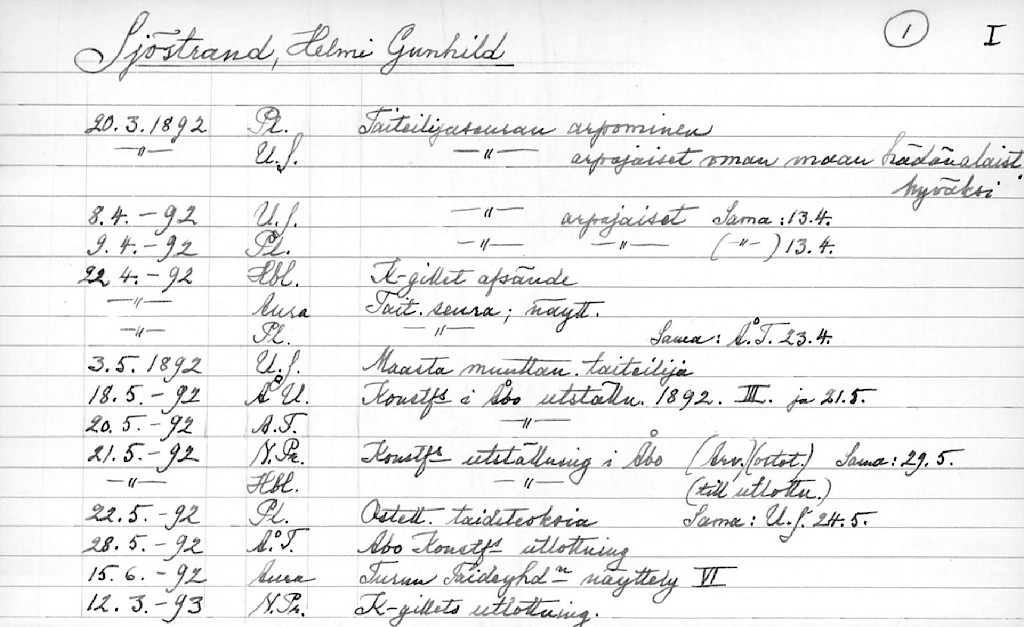 Sjöstrand, Helmi Gunhild 1 I
20.3.1892 Pl. Taiteilijaseuran arpominen
—"— U.S. —"— arpajaiset oman maan hädänalaist.
hyväksi
8.4.-92 U.S. —"— arpajaiset Sama: 13.4.
9.4.-92 Pl. —"— —"— (—"—) 13.4.
22.4.-92 Hbl. K-gillet afsände
—"— Aura Tait. seura; näytt.
—"— Pl. —"— Sama: Å.T. 23.4.
3.5.1892 U.S. Maasta muuttan. taiteilija
18.5.-92 Å.U. Konstfs i Åbo utställn. 1892. III. ja 21.5.
20.5.-92 Å.T. —"—
21.5.-92 N.Pr. Konstfs utställning i Åbo (Arv.)(ostot.) Sama: 29.5.
—"— Hbl. —"— (till utlottn.)
22.5.-92 Pl. Ostett. taideteoksia Sama: U.S. 24.5.
28.5.-92 Å.T. Åbo Konstfs utlottning
15.6.-92 Aura Turun Taideyhdn näyttely VI
12.3.-93 N.Pr. K-gillets utlottning.